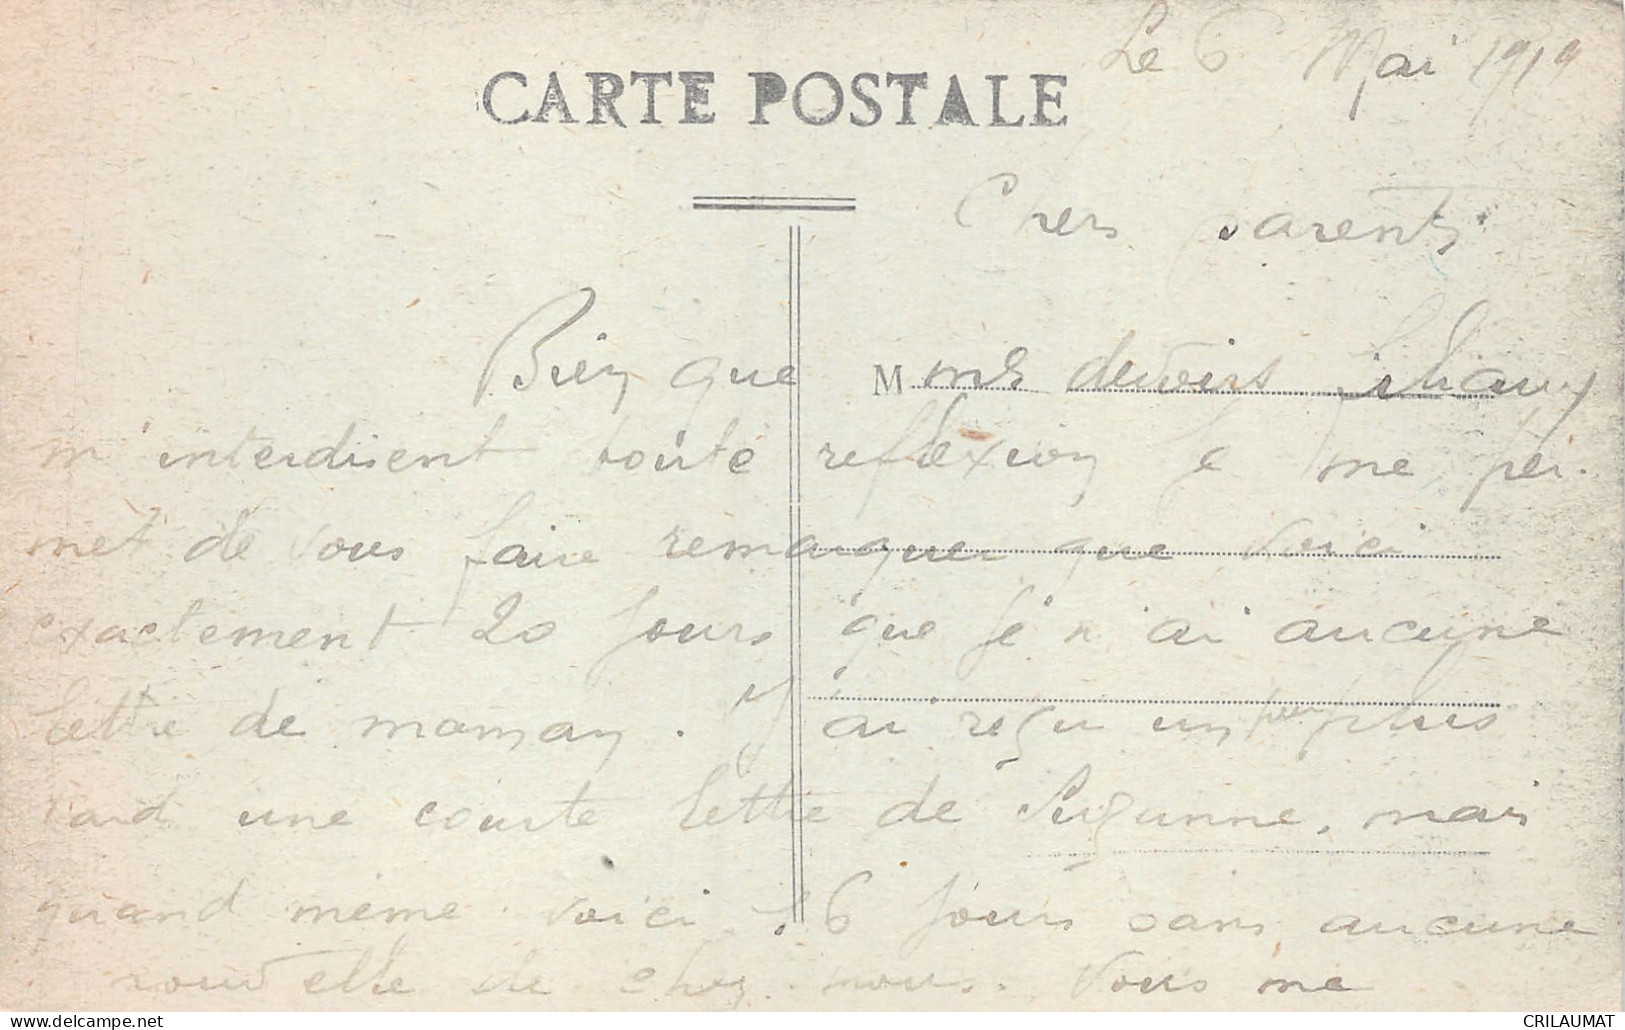 Le 6 Mai 1919
CARTE POSTALE
Chers parents
Bien que M mes devoirs filiaux
m'interdisent toute reflexion je me per-
met de vous faire remarquer que voici
exactement 20 jours que je n'ai aucune
lettre de maman. J'ai reçu un peu plus
tard une courte lettre de Suzanne, mais
quand même voici 16 jours sans aucune
nouvelle de chez nous. Vous me
CRILAUMAT